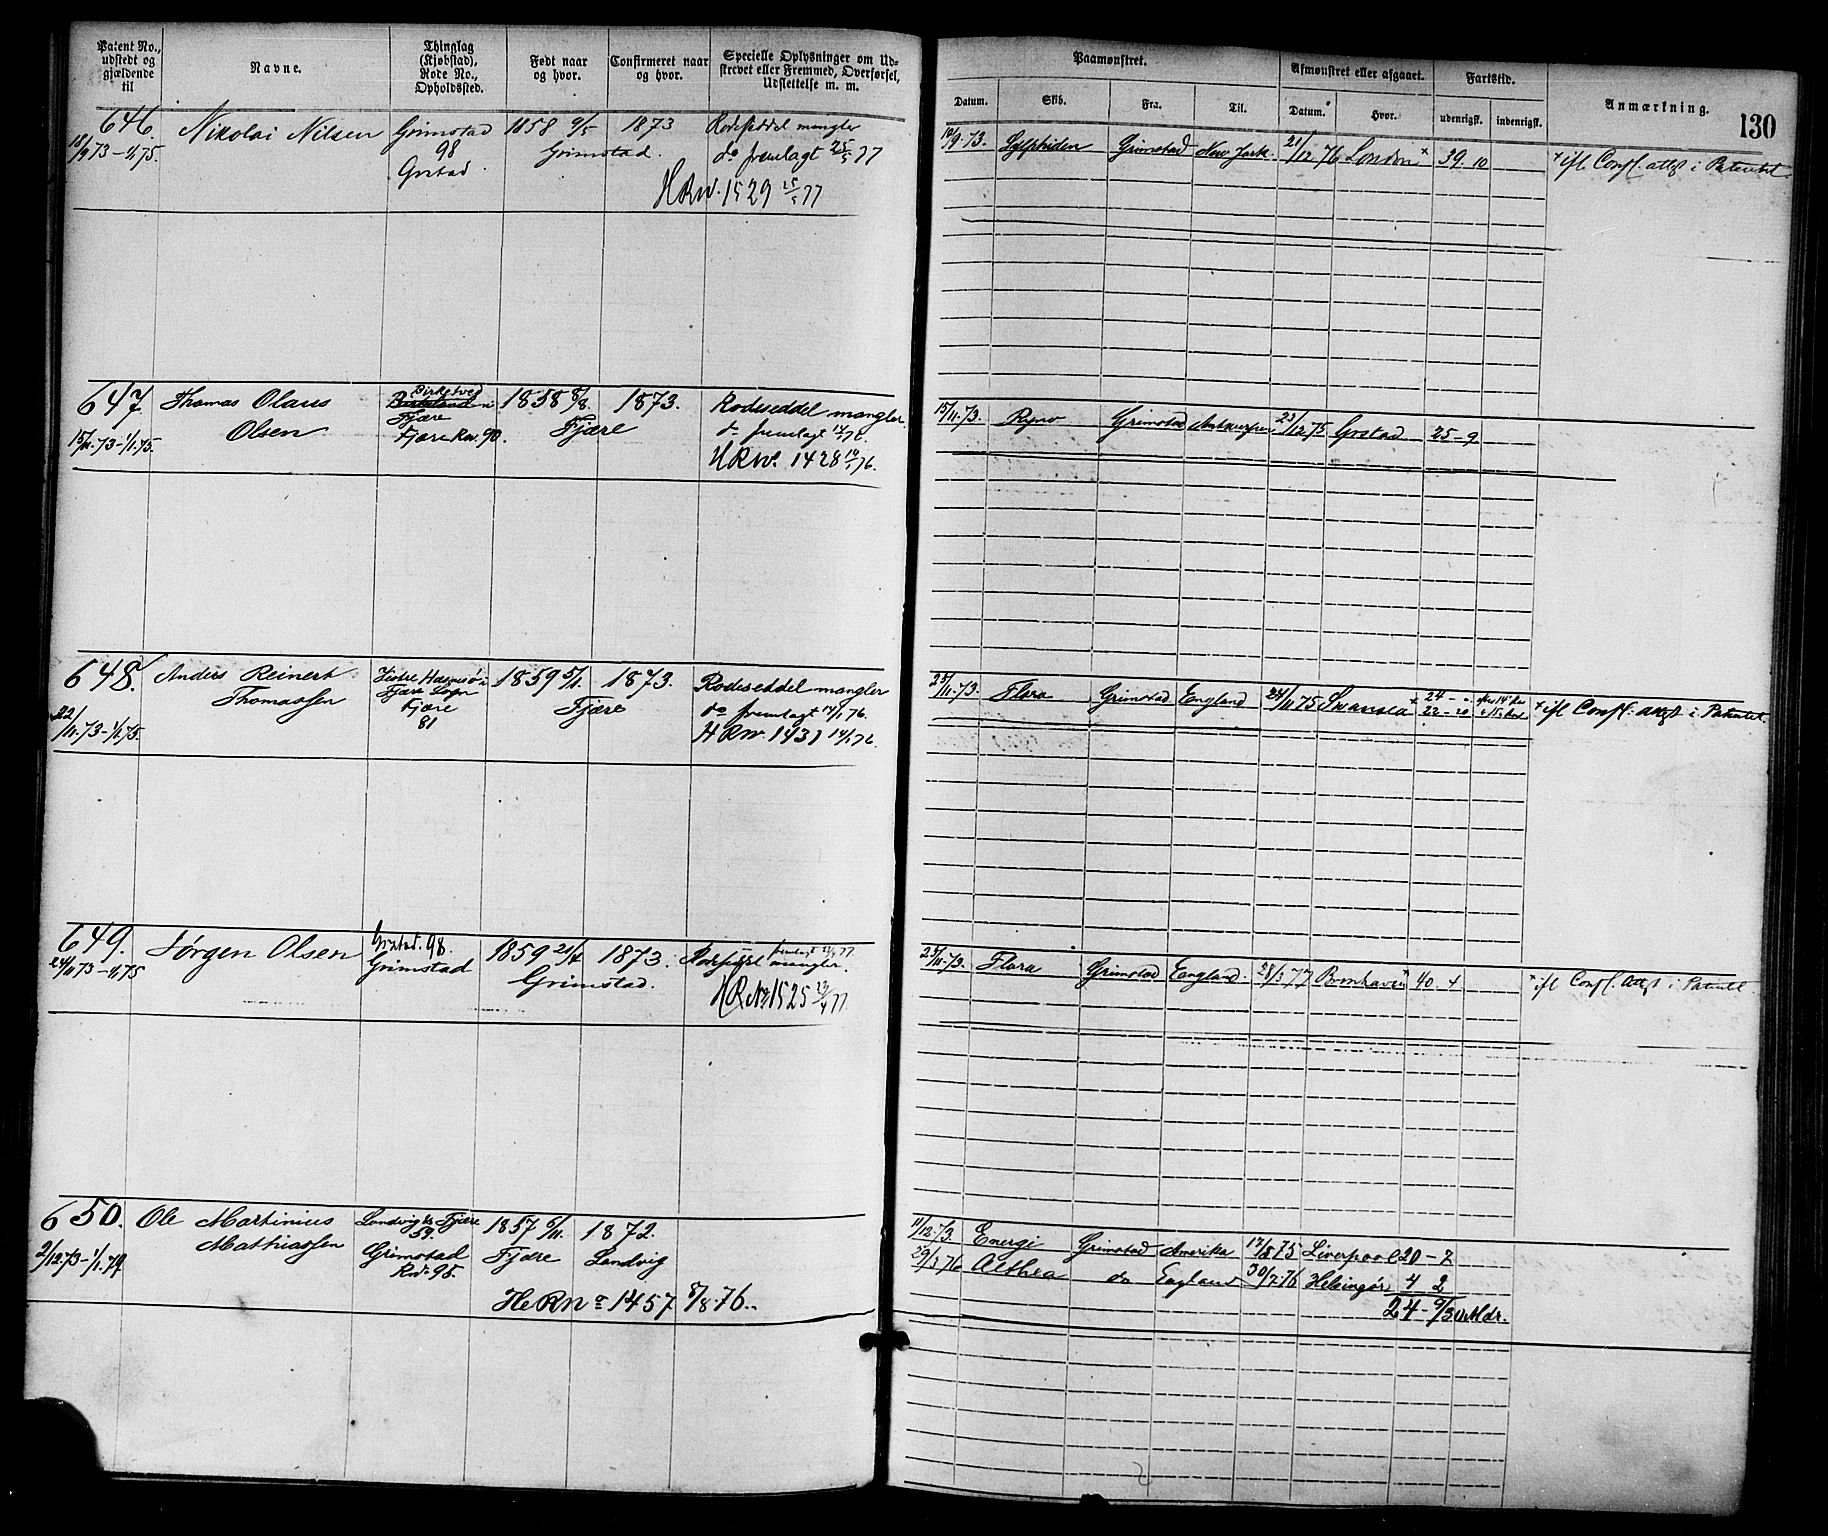 Patent No., udstedt og gjældende til
Navne.
Thinglag (Kjøbstad), Rode No., Opholdssted.
Født naar og hvor.
Confirmeret naar og hvor.
Specielle Oplysninger om Udstrevet eller Fremmed, Overførsel, Udslettelse m. m.
Paamønstret.
Datum.
Skib.
Fra.
Til.
Afmønstret eller afgaaet.
Datum.
Hvor.
Fartstid.
udenrigsk.
indenrigsk.
Anmærkning.
130
646.
18/9 73-1/1 75.
Nikolai Nilsen
Grimstad
98
Grstad.
1858 9/5
1873
Grimstad.
Rodeseddel mangler
do fremlagt 25/5 77
HRNo. 1529 25/5 77
19/9.73.
Sylphiden
Grimstad
New York.
21/12 76
London x
39. 10
x ifl Consl. attst i Patentet.
647.
15/11.73-1/1.75.
Thomas Olaus
Olsen
Birketved
Fjære
Fjære No. 90.
1858 8/8.
1873.
Fjære
Rodeseddel mangler
do fremlagt
HRNo. 1428
15/11.73.
Grimstad
Antwerpen
23/12 75
Grstad
25-9
648.
22/11.73-1/1.75.
Anders Reinert
Thomassen
Vestre Hasnesø i
Fjære Sogn
Fjære
81
1859 5/1.
1873.
Fjære
Rodeseddel mangler
do fremlagt 14/1 76.
HRNo. 1431 14/1 76.
25/11.73.
Flora
Grimstad
England
24/11 75
Swansea x
24 -
22-20
x ifl Consl. attst i Patentet.
649.
24/11 73-1/1 75
Jørgen Olsen
Grstad. 98.
Grimstad
1859 21/4
1873.
Grimstad.
mangler.
HRNo 1525
25/11.73.
Flora
Grimstad
England.
28/3 77
40 - 4
x ifl Consl. attst i Patentet.
650.
2/12.73-1/1.79.
Ole Martinius
Mathiassen
Landvig Fjære
59.
Grimstad
No. 98.
1857 6/11.
1872.
Fjære
Landvig
HeRNo 1457 8/8.76.
11/12.73.
Energi
Grimstad
Amerika
17/8 75
Liverpool
20 - 7
29/3 76
Althea
do
England
30/7.76
Helsingør
4 2
24 - 9/30 Mdr.